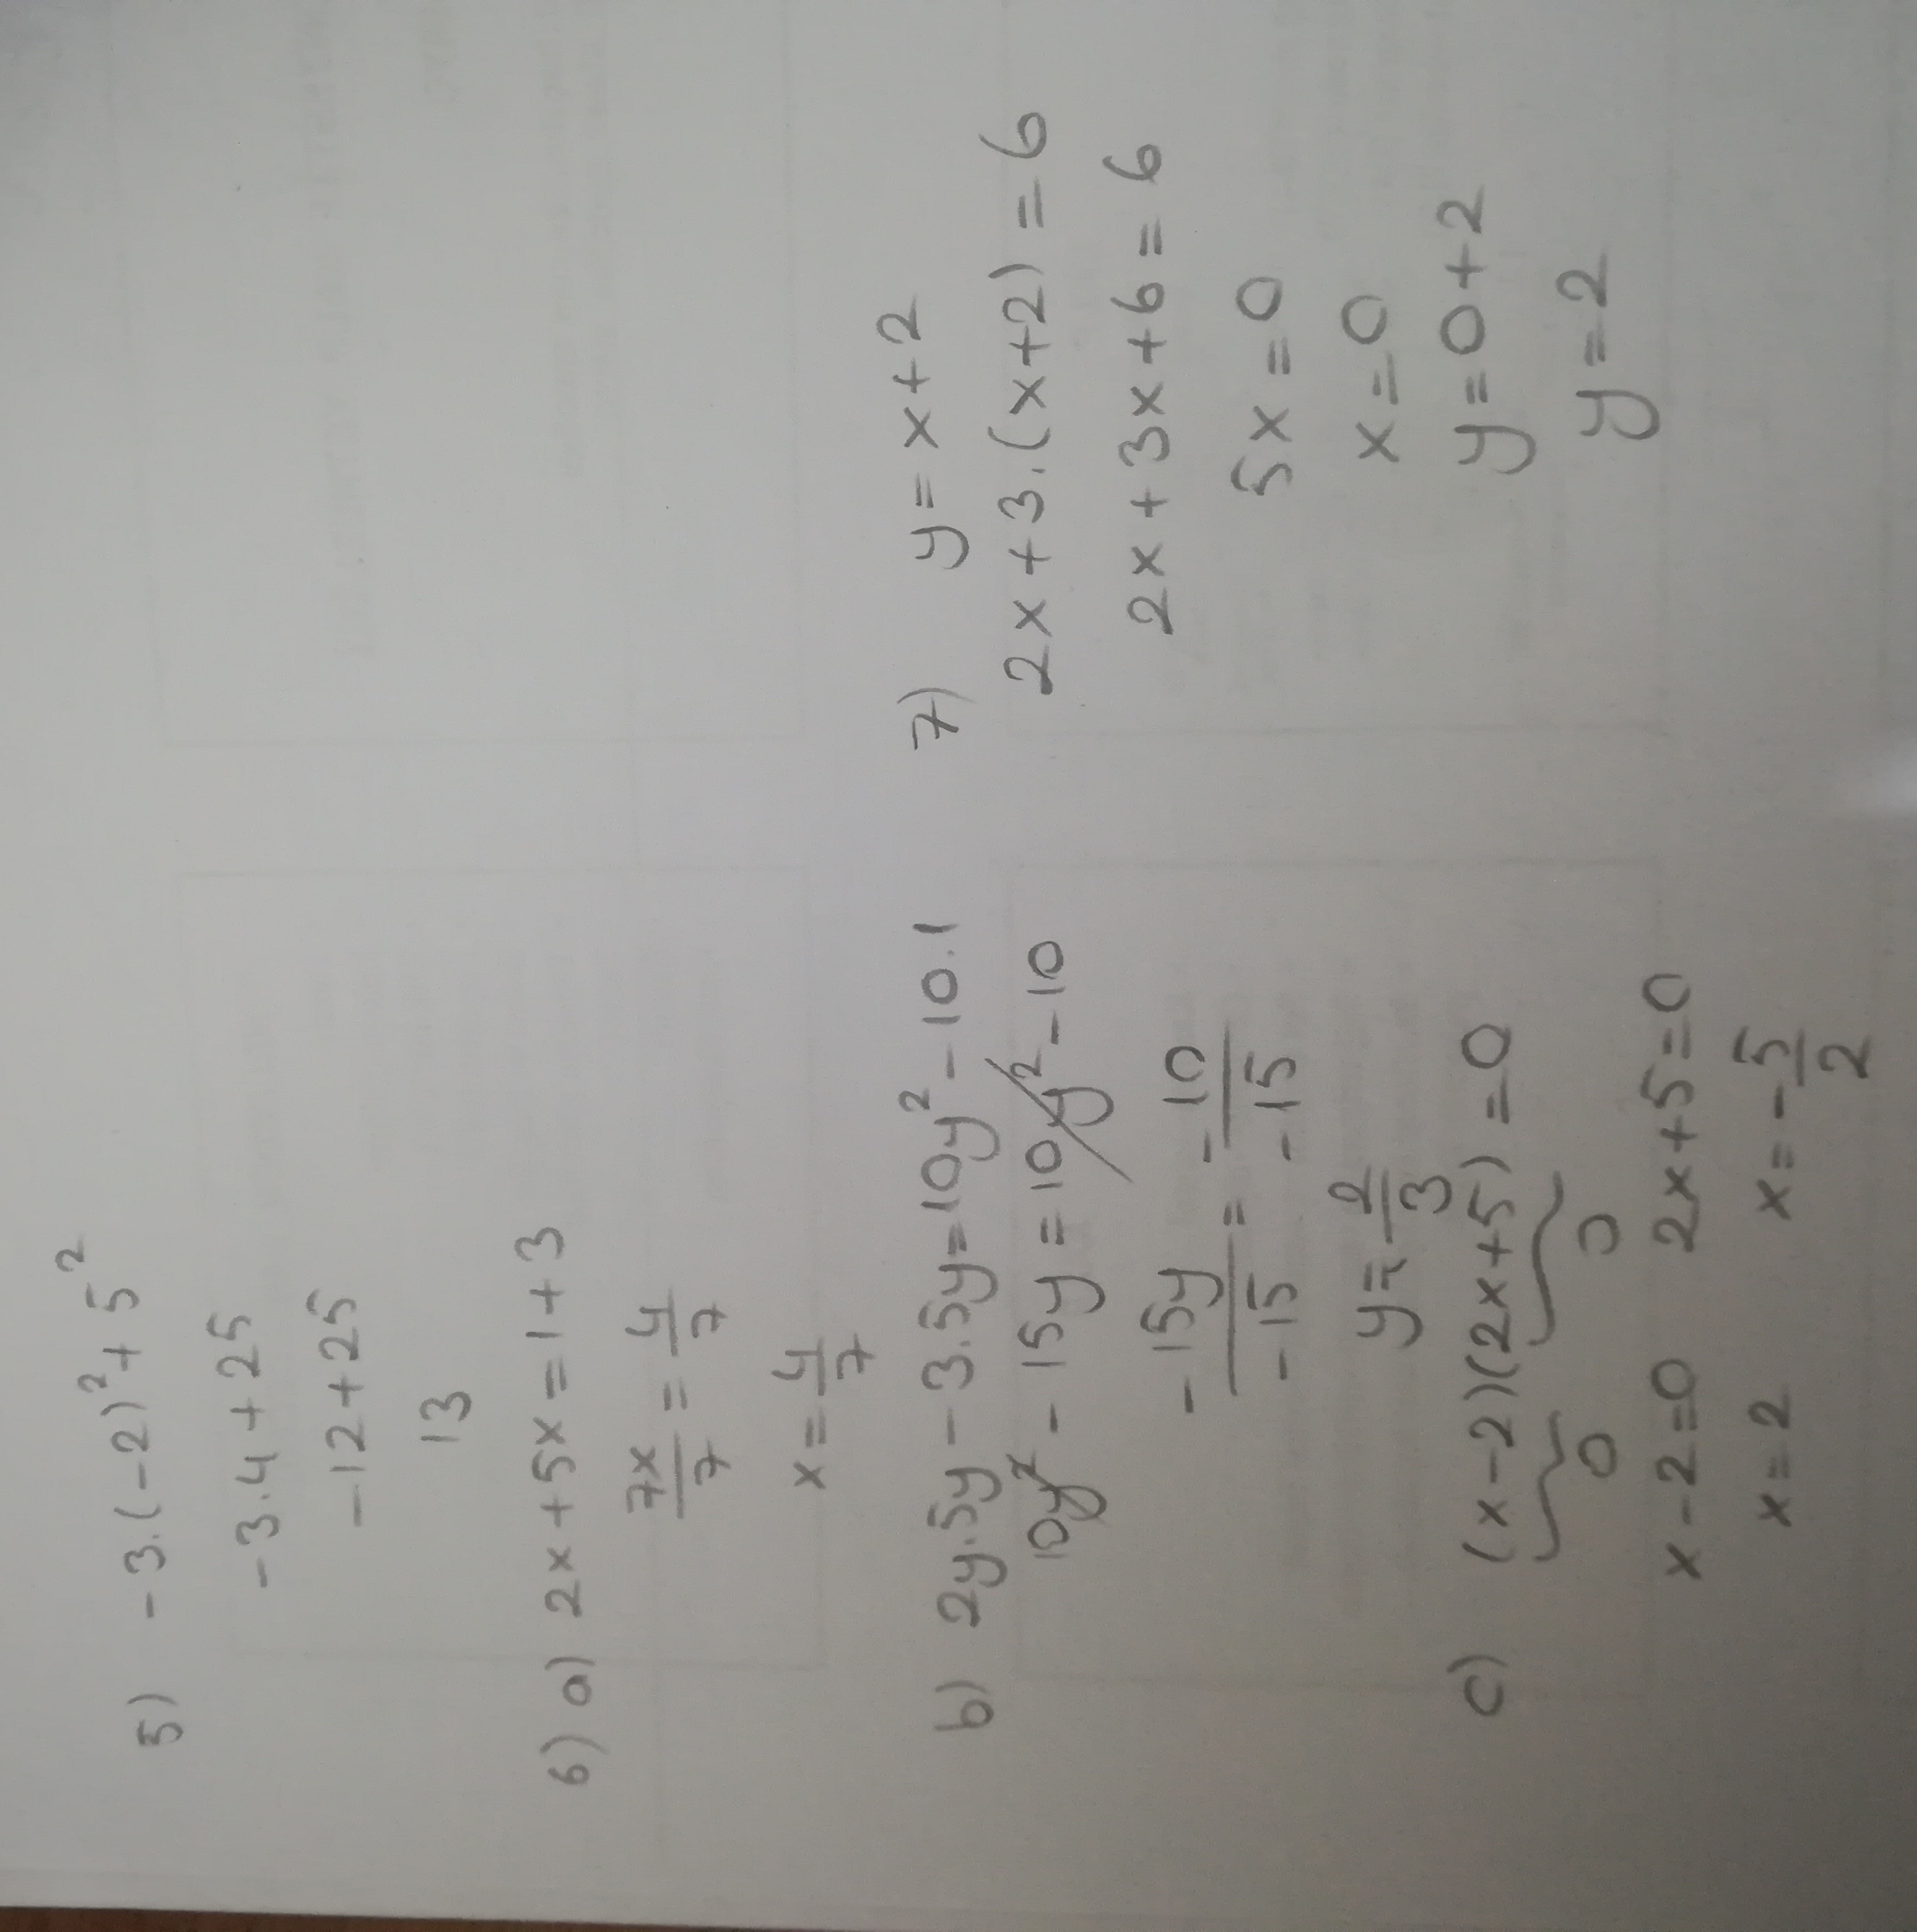 5) -3.(-2)²+5²
-3.4+25
-12+25
13
6) a) 2x+5x=1+3
7x/7 = 4/7
x=4/7
b) 2y.5y-3.5y=10y²-10.1
10y²-15y=10y²-10
-15y/-15 = -10/-15
y=2/3
c) (x-2)(2x+5)=0
0 0
x-2=0 2x+5=0
x=2 x=-5/2
7) y=x+2
2x+3.(x+2)=6
2x+3x+6=6
5x=0
x=0
y=0+2
y=2